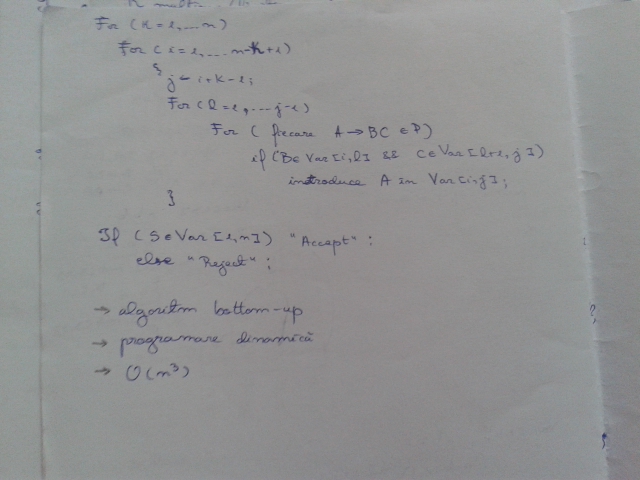 For (k=2,...n)
For (i=1,...n-k+1)
{
j ← i+k-1;
For (l=i,...j-1)
For ( fiecare A → BC ∈ P)
if (B∈Var[i,l] && C∈Var[l+1,j])
introduce A în Var[i,j];
}
If (S∈Var[1,n]) "Accept";
else "Reject";
→ algoritm bottom-up
→ programare dinamică
→ O(n³)